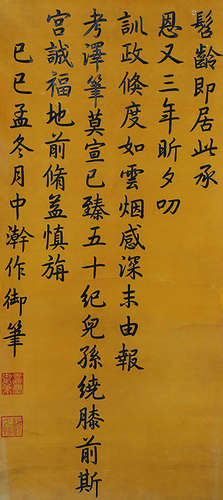 髫齡即居此承
恩又三年昕夕叨
訓政倏度如雲烟感深未由報
考澤筆莫宣已臻五十紀兒孫繞膝前斯
宮誠福地前脩益慎旃
己巳孟冬月中澣作御筆